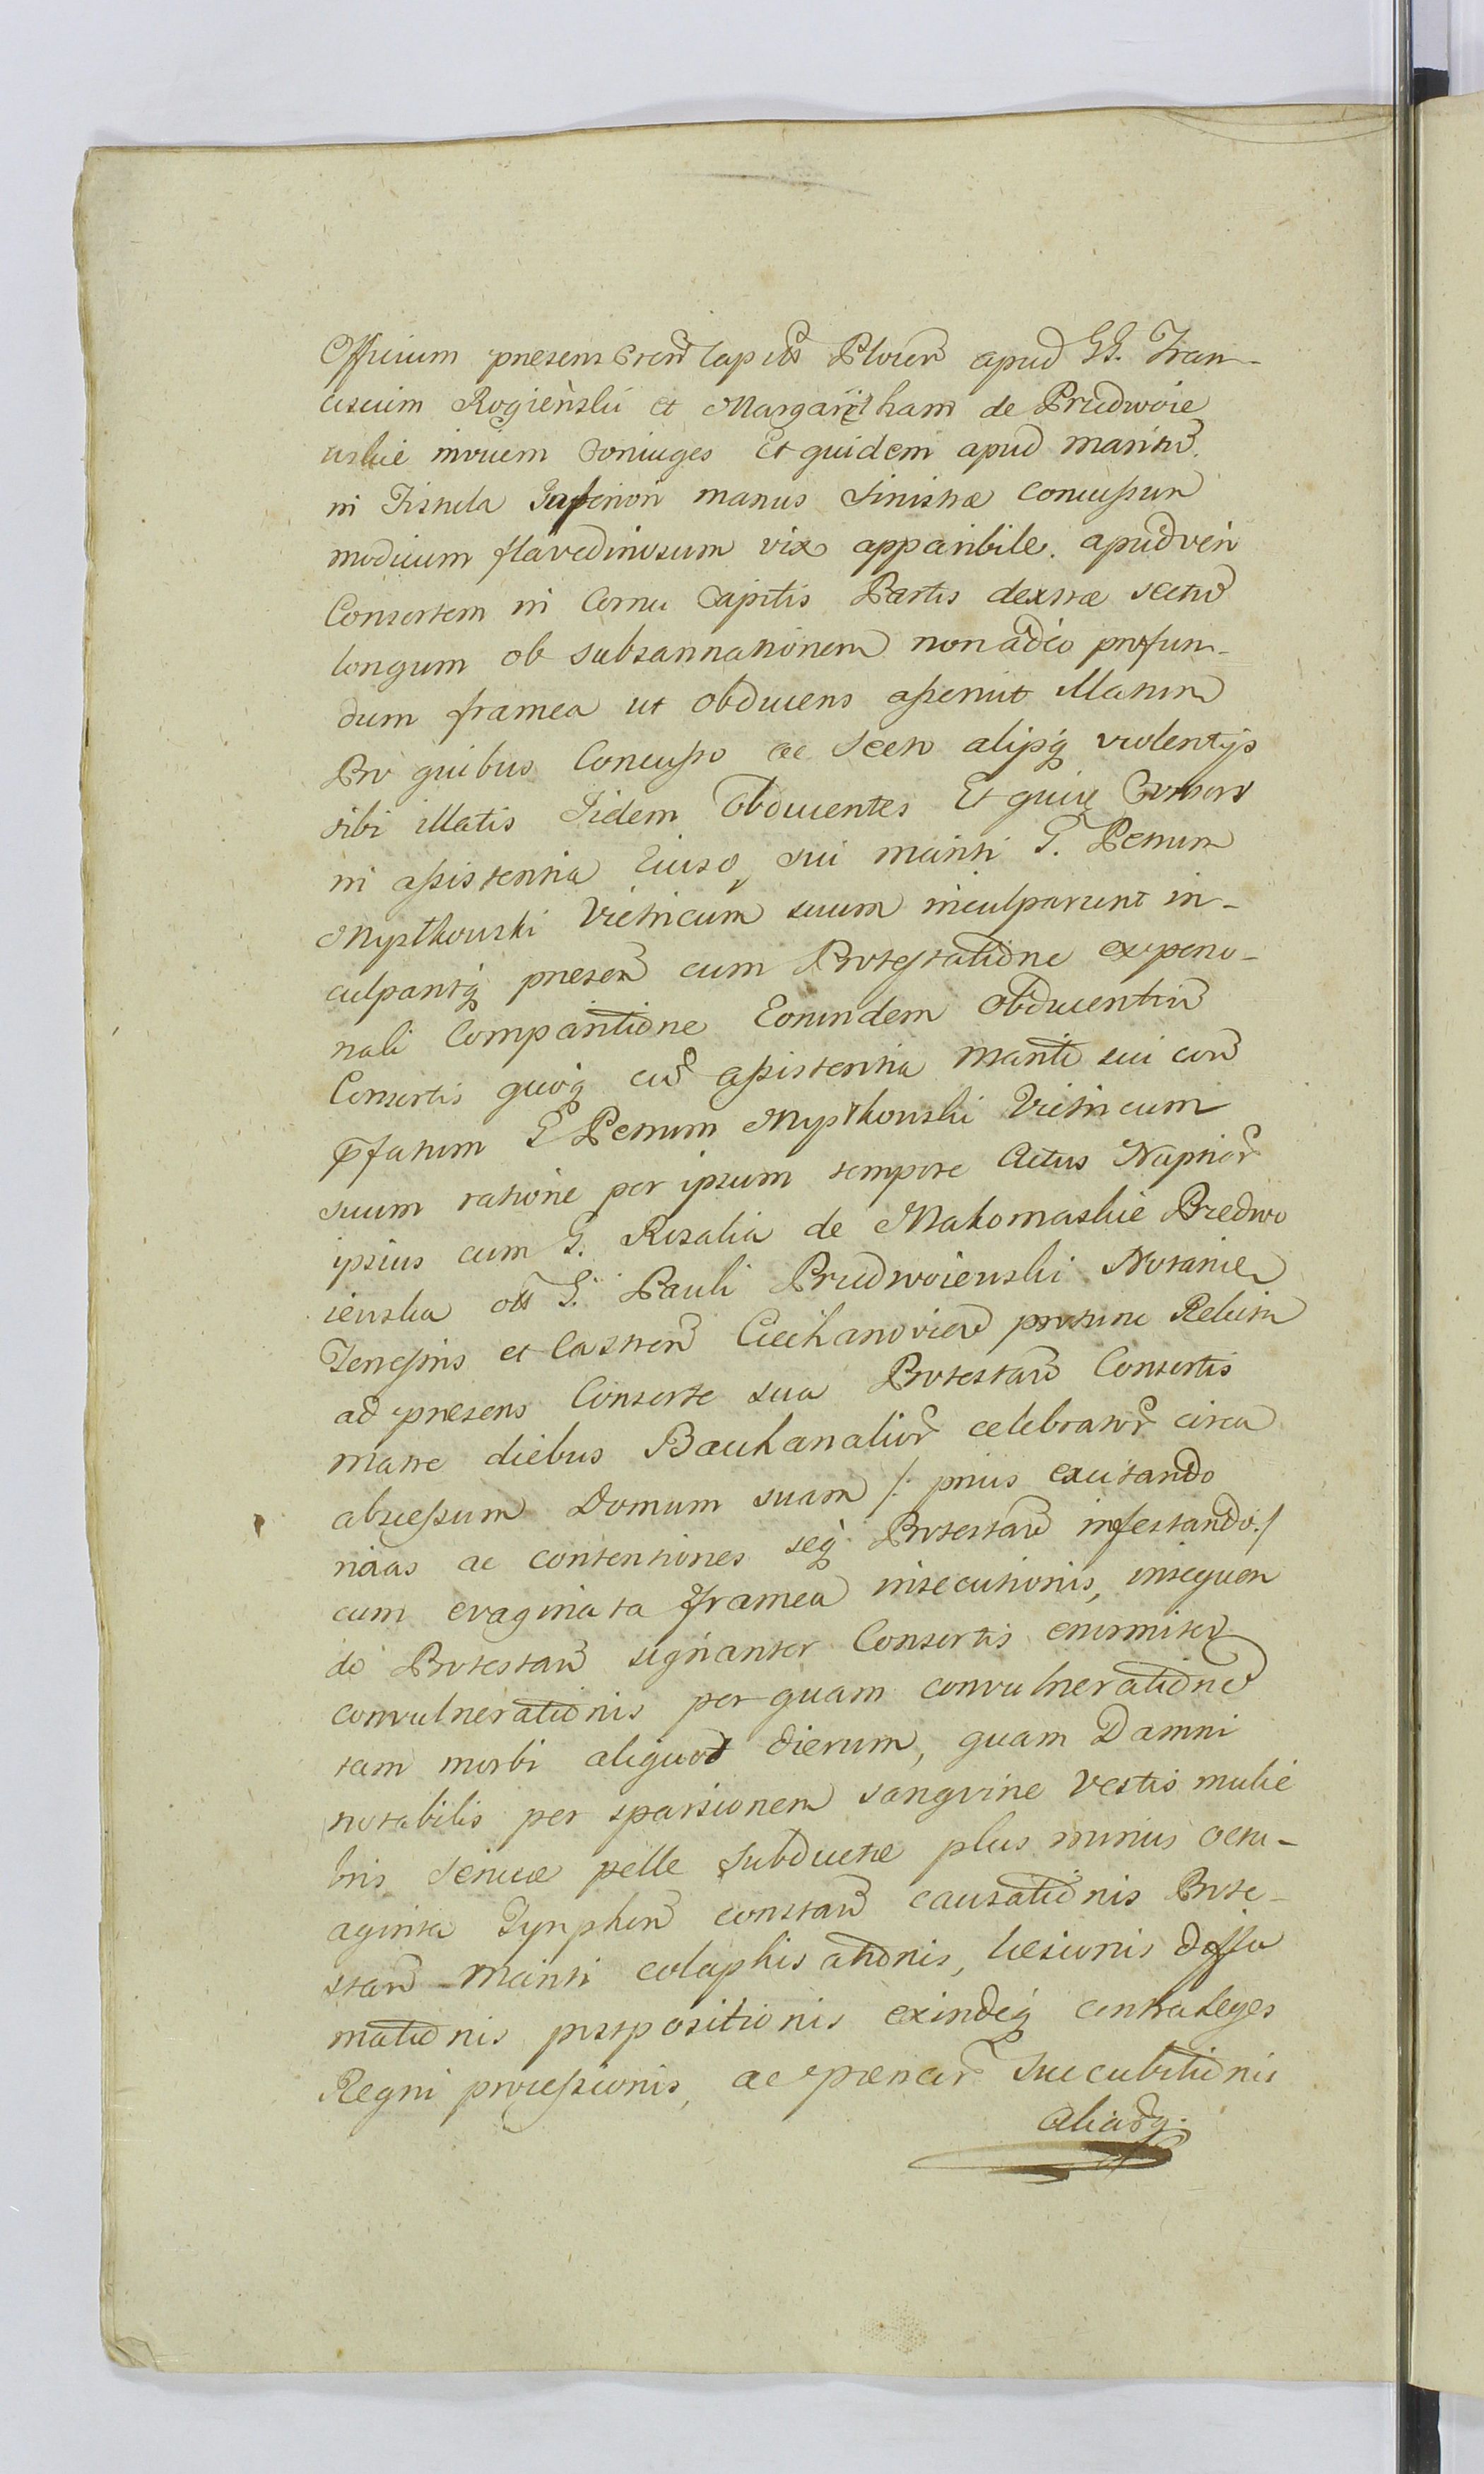 Officium presens Cren Capitlis Plocen apud GG. Fran-
ciscum Rogieński et Margaretham de Prudwoie
uskie invicem Coniuges Et quidem apud maritu
in Fistula Inferiori manus sinistræ concussum
modicum flavedinosum vix apparibile. apud veri
Consortem in Cornu Capitis Partis dextræ sectu
longum ob subsannationem non adeo profun-
dum framea ut obducens asseruit illatum
Pro quibus Concusso ac Secto alijsq violentijs
sibi illatis Iidem Obducentes Et quie Consors
in assistentia Eiusd sui mariti G. Petrum
Mystkowski Vitricum suum inculparunt in-
culpantq presen cum Protestatione ex perso-
nali Comparitione Eorundem obducentiu
Consortis quoq cu assistentia mariti sui con
pfatum G Petrum Mystkowski Vitricum
suum ratione per ipsum tempore Actus Nuptior
ipsius cum G. Rosalia de Makomaskie Predwo
iewska olt G. Pauli Prudwoiewski Notarie
Terrestris et Castren Ciechanovien protunc Relicta
ad presens Consorte sua Protestan Consortis
matre diebus Bachanalior celebrator circa
abscessum Domum suam /: prius excitando
rixas ac contentiones seq Protestan infestando :/
cum evaginata framea insecutionis, insequen
do Protestan signanter Consortis enormiter
convulnerationis per quam convulneratione
tam morbi aliquot dierum, quam Damni
notabilis per sparsionem sangvine vestis mulie
bris sericæ pelle subductæ plus minus octu-
aginta Tynphen constan causationis Prote-
stan Mariti colaphisationis, læsionis diffa
mationis prospositionis exindeq contra Leges
Regni processionis, ac pænar succubitionis
Aliasq.